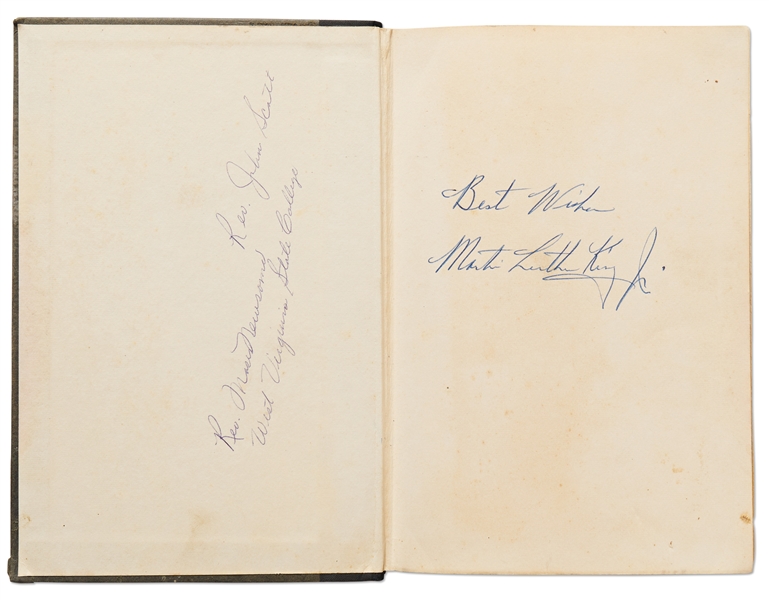 Rev. Moses Newsome Rev. John Scott
West Virginia State College
Best Wishes
Martin Luther King Jr.